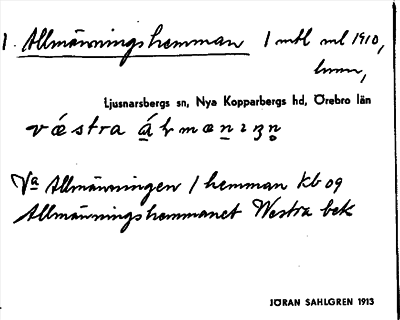 1. Allmänningshemman 1 mtl ml 1910,
Ljusnarsbergs sn, Nya Kopparbergs hd, Örebro län
Va Allmänningen 1 hemman Kb 09
Allmänningshemmanet Westra bek
JÖRAN SAHLGREN 1913